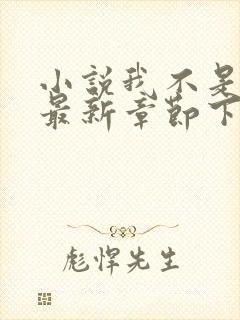 小说我不是
最新章节下
彪悍先生